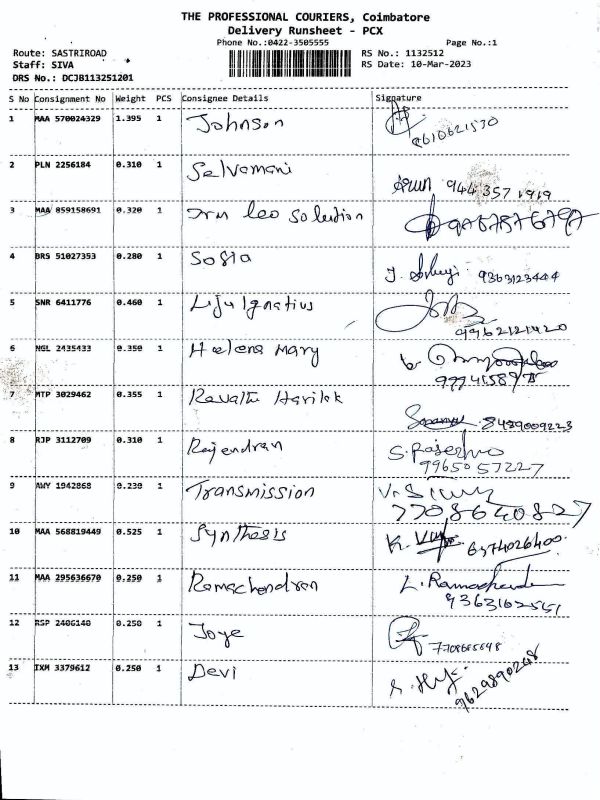 THE PROFESSIONAL COURIERS, Coimbatore
Delivery Runsheet - PCX
Phone No.:0422-3505555 Page No.:1
Route: SASTRIROAD RS No.: 1132512
Staff: SIVA RS Date: 10-Mar-2023
DRS No.: DCJB113251201
S No Consignment No Weight PCS Consignee Details Signature
1 MAA 570024329 1.395 1 Johnson
8610621530
2 PLN 2256184 0.310 1 Selvamani
944 357 1919
3 MAA 859158691 0.320 1 leo solution
9767576797
4 BRS 51027353 0.280 1 Sofia
9363123444
5 SNR 6411776 0.460 1 Liju Ignatius
9962121420
6 NGL 2435433 0.350 1 Heelena Mary
7 MTP 3029462 0.355 1
8489009223
8 RJP 3112709 0.310 1 Rajendran
9965057227
9 AWY 1942868 0.230 1 Transmission
7708640827
10 MAA 568819449 0.525 1 Synthesis
6374026400
11 MAA 295636670 0.250 1 Ramachandran L. Ramachandran
12 RSP 2406140 0.250 1 Joye
13 IXM 3379612 0.250 1 Devi
9629890248